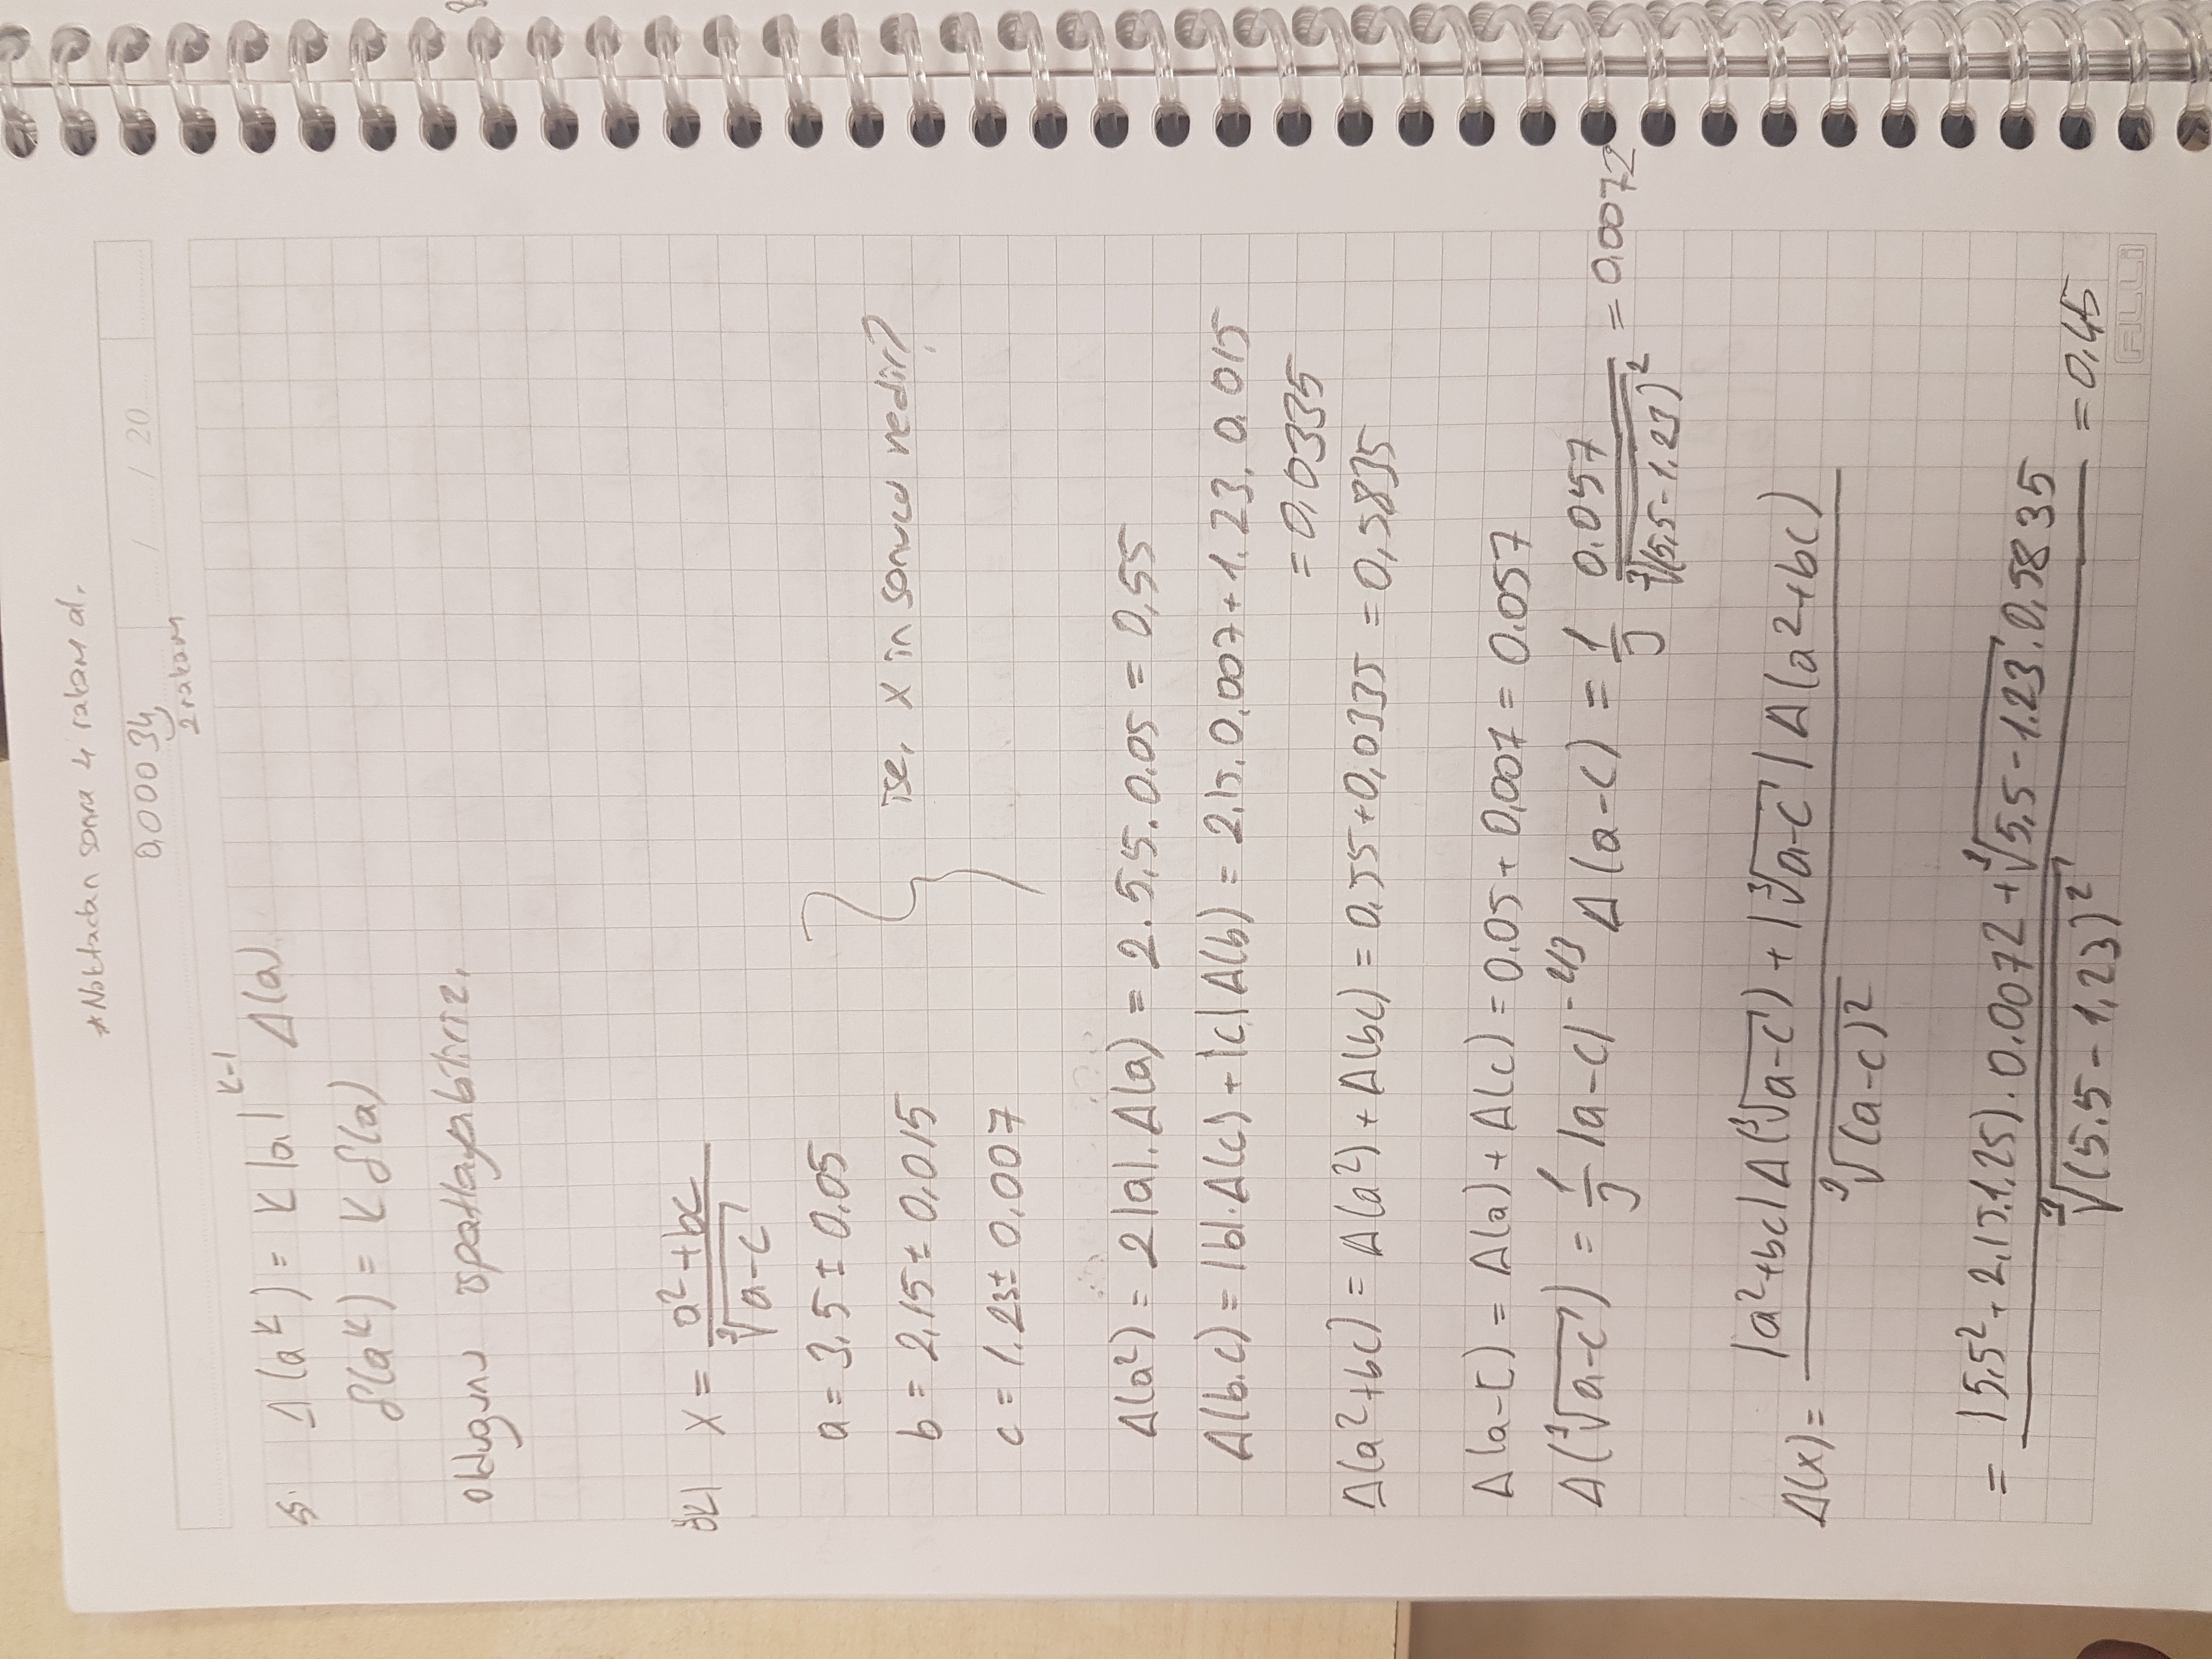 *Noktadan sonra 4 rakam al.
0,00034
2 rakam
/ / 20
5. Δ(a^k) = k |a|^k-1 Δ(a)
δ(a^k) = k δ(a)
olduğunu ispatlayabiliriz.
ÖR) x = (a² + bc) / ∛(a-c)
a = 3,5 ± 0,05
b = 2,15 ± 0,015
ise, x in sonucu nedir?
c = 1.23 ± 0,007
Δ(a²) = 2|a|.Δ(a) = 2.5,5.0.05 = 0,55
Δ(b.c) = |b|.Δ(c) + |c| Δ(b) = 2,15.0,007 + 1.23.0.015
= 0,0335
Δ(a²+bc) = Δ(a²) + Δ(bc) = 0,55 + 0,0335 = 0,5835
Δ(a-c) = Δ(a) + Δ(c) = 0.05 + 0,007 = 0.057
Δ(∛(a-c)) = 1/3 |a-c|^-2/3 Δ(a-c) = 1/3 0.057 / ∛(5,5-1.23)² = 0,0072
Δ(x) = (|a²+bc| Δ(∛(a-c)) + |∛(a-c)| Δ(a²+bc)) / ∛(a-c)²
= ((5,5² + 2,15.1,25).0.0072 + ∛(5,5-1.23).0,5835) / ∛(5.5-1,23)² = 0,45
ALLi